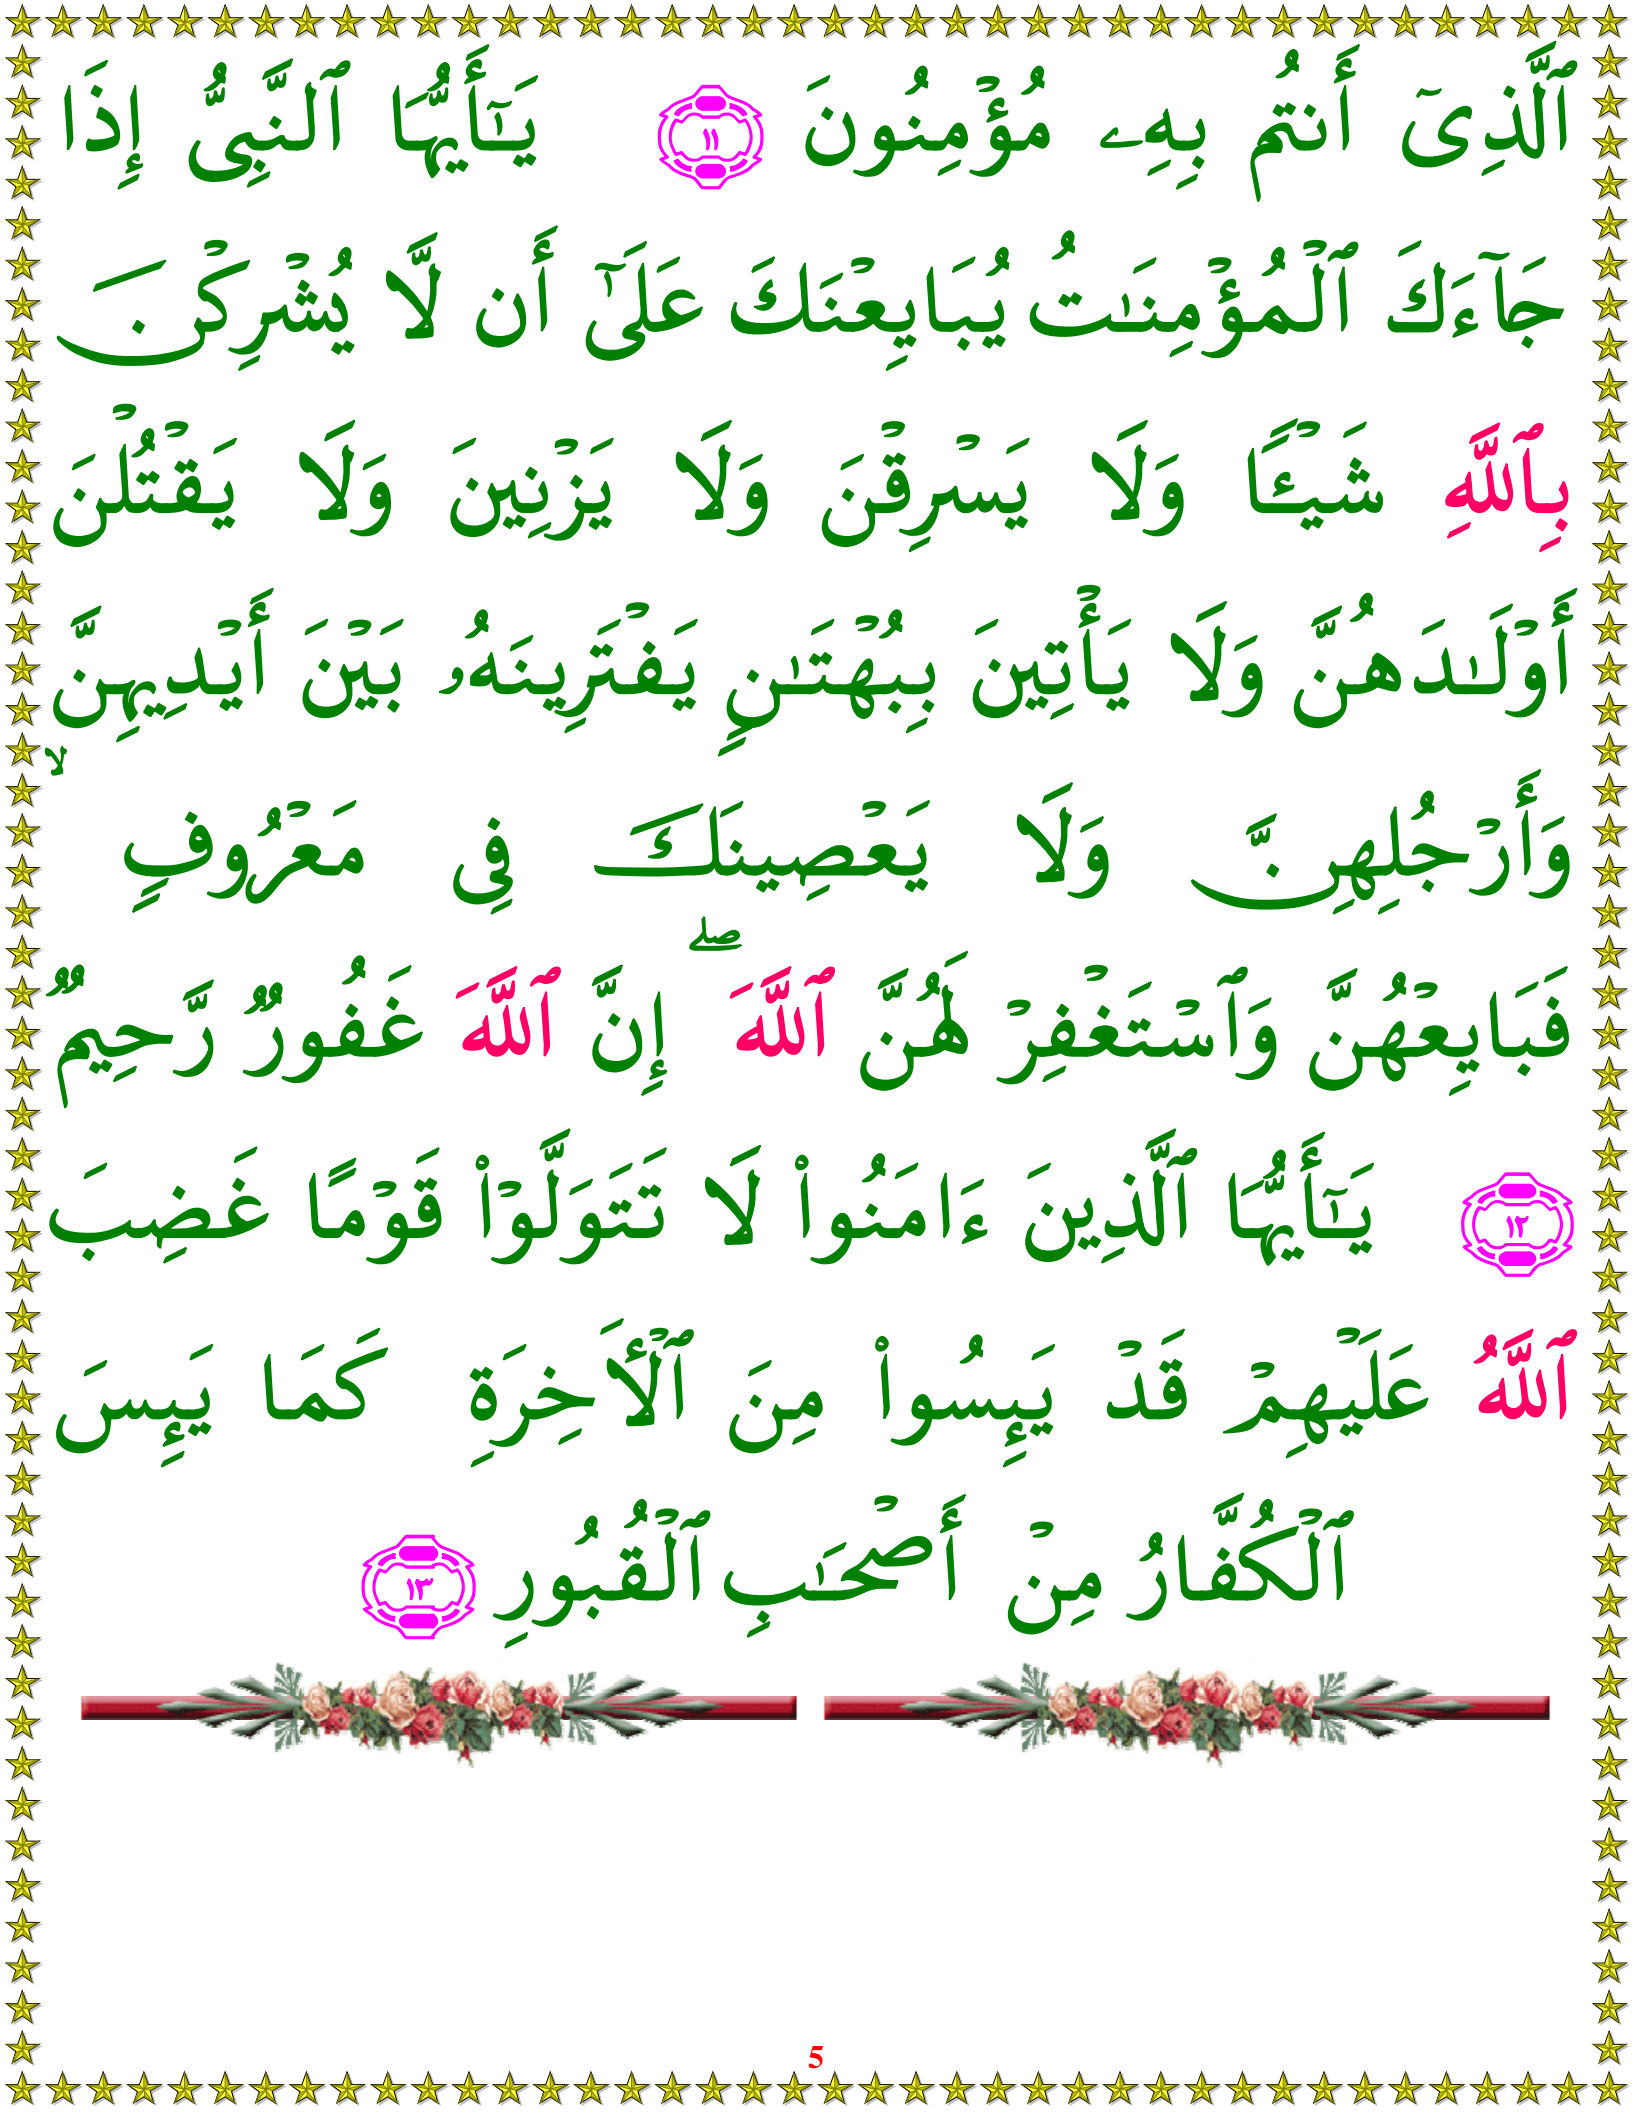 ٱلَّذِىٓ أَنتُم بِهِۦ مُؤْمِنُونَ ١١ يَـٰٓأَيُّهَا ٱلنَّبِىُّ إِذَا
جَآءَكَ ٱلْمُؤْمِنَـٰتُ يُبَايِعْنَكَ عَلَىٰٓ أَن لَّا يُشْرِكْنَ
بِٱللَّهِ شَيْـًٔا وَلَا يَسْرِقْنَ وَلَا يَزْنِينَ وَلَا يَقْتُلْنَ
أَوْلَـٰدَهُنَّ وَلَا يَأْتِينَ بِبُهْتَـٰنٍ يَفْتَرِينَهُۥ بَيْنَ أَيْدِيهِنَّ
وَأَرْجُلِهِنَّ وَلَا يَعْصِينَكَ فِى مَعْرُوفٍ ۙ
فَبَايِعْهُنَّ وَٱسْتَغْفِرْ لَهُنَّ ٱللَّهَ ۖ إِنَّ ٱللَّهَ غَفُورٌ رَّحِيمٌ
١٢ يَـٰٓأَيُّهَا ٱلَّذِينَ ءَامَنُوا۟ لَا تَتَوَلَّوْا۟ قَوْمًا غَضِبَ
ٱللَّهُ عَلَيْهِمْ قَدْ يَئِسُوا۟ مِنَ ٱلْأَخِرَةِ كَمَا يَئِسَ
ٱلْكُفَّارُ مِنْ أَصْحَـٰبِ ٱلْقُبُورِ ١٣
5